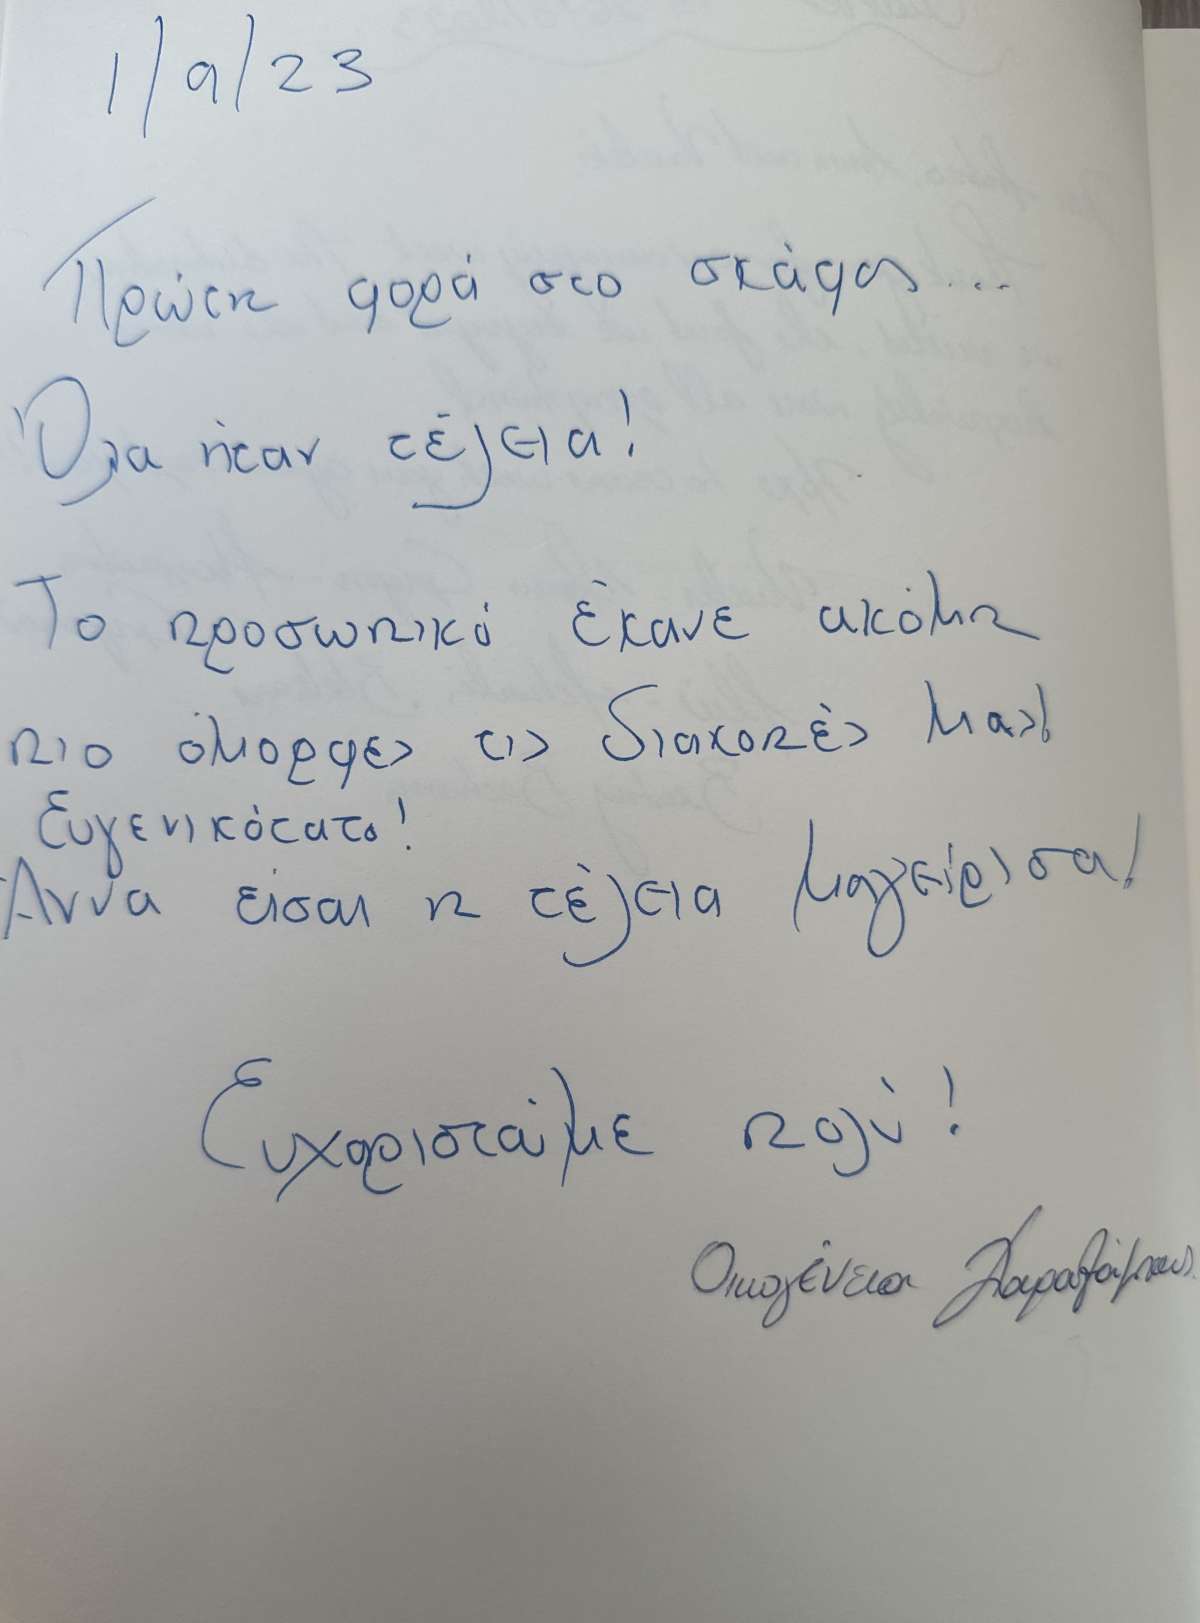 1/9/23
Πρώτη φορά στο σκάφος...
Όλα ήταν τέλεια!
Το προσωπικό έκανε ακόμη
πιο όμορφες τις διακοπές μας!
Ευγενικότατο!
Άννα είσαι η τέλεια μαγείρισα!
Ευχαριστούμε πολύ!
Οικογένεια